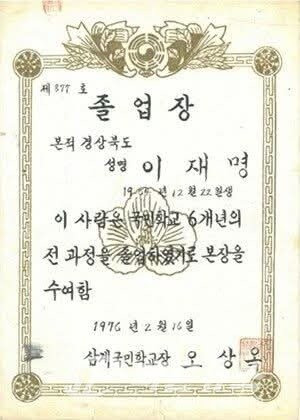 제 377 호
졸업장
본적 경상북도
성명 이재명
19 년 12월 22일생
이 사람은 국민학교 6개년의
전 과정을 졸업하였기로 본장을
수여함
1976 년 2월 16일
삼계국민학교장 오상옥